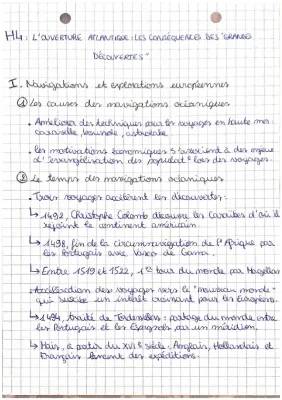 H4 : L'OUVERTURE ATLANTIQUE : LES CONSÉQUENCES DES "GRANDES
DÉCOUVERTES"
I. Navigations et explorations européennes
① Les causes des navigations océaniques
• Améliorer des techniques pour les voyages en haute mer :
caravelle, boussole, astrolabe
• les motivations économiques s'associent à des enjeux
d'évangélisation des populat° lors des voyages.
② Le temps des navigations océaniques
• Trois voyages accélèrent les découvertes :
↳ 1492, Christophe Colomb découvre les Caraïbes d'où il
rejoint le continent américain.
↳ 1498, fin de la circumnavigation de l'Afrique par
les Portugais avec Vasco de Gama.
↳ Entre 1519 et 1522, 1er tour du monde par Magellan
• Accélération des voyages vers le "nouveau monde"
qui suscite un intérêt croissant pour les Européens.
↳ 1494, traité de Tordesillas : partage du monde entre
les Portugais et les Espagnols par un méridien.
↳ Mais, à partir du XVIe siècle : Anglais, Hollandais et
Français lancent des expéditions.